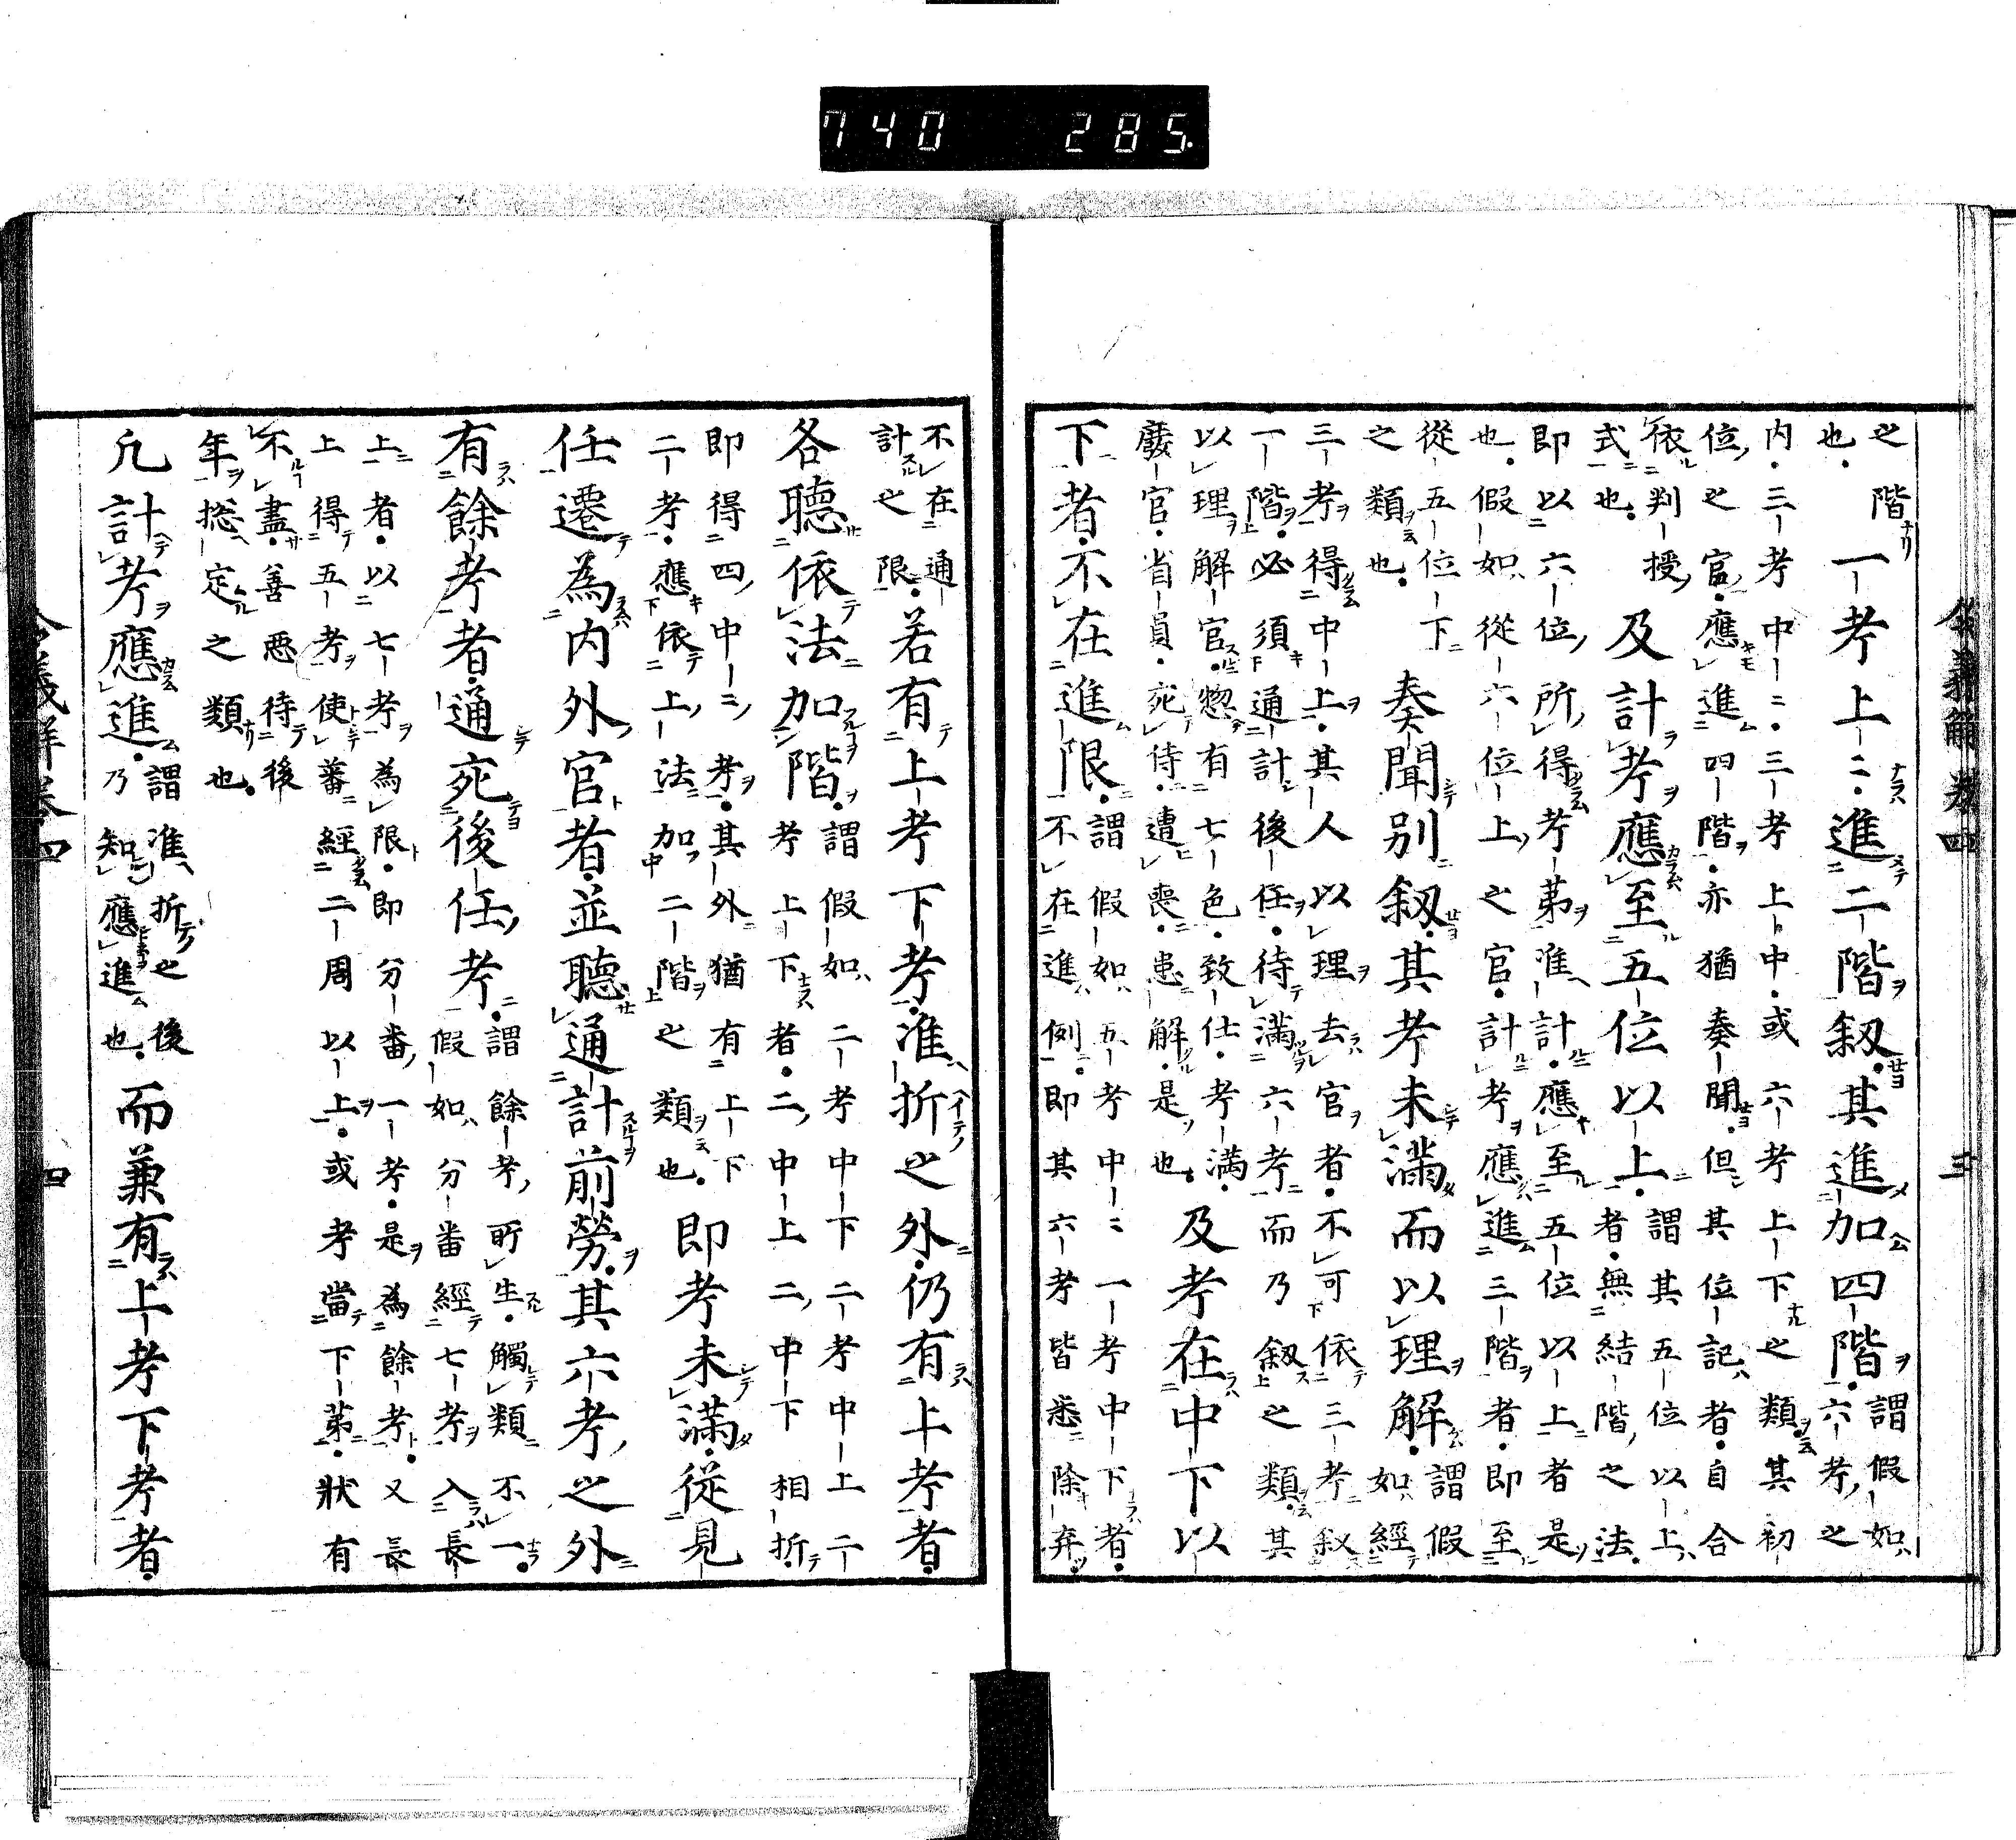 740 285.
令義解卷四 三
之階
也
一考上二進二階叙其進加四階
謂假如
六考之
内三考中二三考上中或六考上下之類其初
位之官應進四階亦猶奏聞但其位記者自合
依判授
式也
及計考應至五位以上
謂其五位以上
者無結階之法
即以六位所得考第唯計應至五位以上者是
也假如從六位上之官計考應進三階者即至
從五位下
之類也
奏聞別叙其考未滿而以理解
謂假
如經
三考得中上其人以理去官者不可依三考叙
一階必須通計後任待滿六考而乃叙之類其
以理解官惣有七色致仕考滿
廢官省員死侍遭喪患解是也
及考在中下以
下者不在進限
謂假如五考中二一考中下者
不在進例即其六考皆悉除弃
不在通
計之限
若有上考下考准折之外仍有上考者
各聽依法加階
謂假如二考中下二考中上二
考上下者二中上二中下相折
即得四中二考其外猶有上下
二考應依上法加二階之類也
即考未滿從見
任遷為内外官者並聽通計前勞其六考之外
有餘考者通死後任考
謂餘考所生觸類不一
假如分番經七考入長
上者以七考為限即分番一考是為餘考又長
上得五考使蕃經二周以上或考當下第狀有
不盡善惡待後
年惣定之類也
凡計考應進
謂准折之後
乃知應進也
而兼有上考下考者
令義解卷四 四